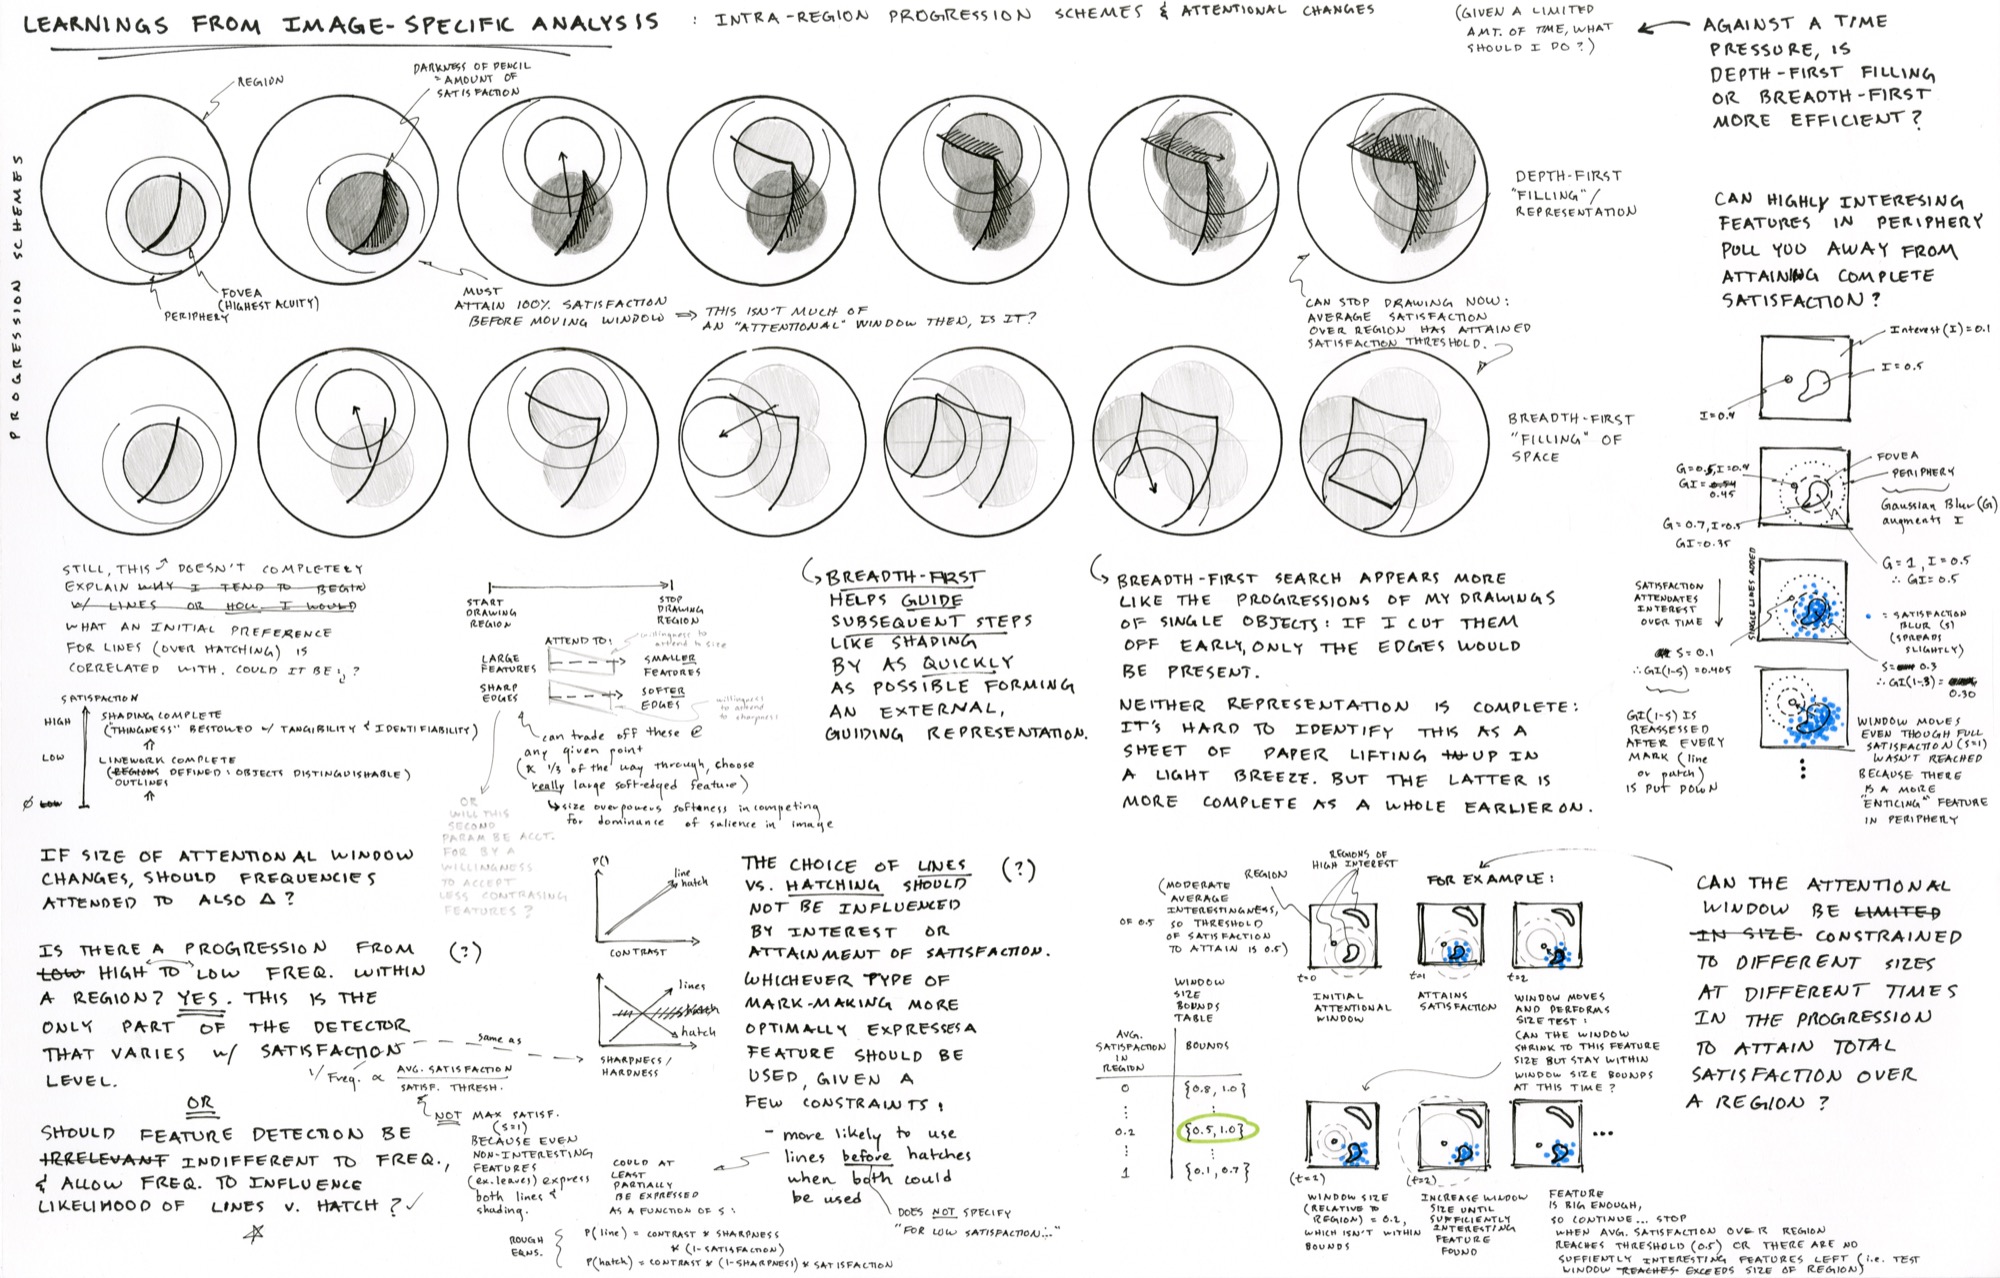 LEARNINGS FROM IMAGE-SPECIFIC ANALYSIS : INTRA-REGION PROGRESSION SCHEMES & ATTENTIONAL CHANGES
(GIVEN A LIMITED
AMT. OF TIME, WHAT
SHOULD I DO?)
AGAINST A TIME
PRESSURE, IS
DEPTH-FIRST FILLING
OR BREADTH-FIRST
MORE EFFICIENT?
PROGRESSION SCHEMES
REGION
DARKNESS OF PENCIL
= AMOUNT OF
SATISFACTION
FOVEA
(HIGHEST ACUITY)
PERIPHERY
MUST
ATTAIN 100% SATISFACTION
BEFORE MOVING WINDOW ⇒ THIS ISN'T MUCH OF
AN "ATTENTIONAL" WINDOW THEN, IS IT?
DEPTH-FIRST
"FILLING"/
REPRESENTATION
CAN STOP DRAWING NOW:
AVERAGE SATISFACTION
OVER REGION HAS ATTAINED
SATISFACTION THRESHOLD.
BREADTH-FIRST
"FILLING" OF
SPACE
CAN HIGHLY INTERESING
FEATURES IN PERIPHERY
PULL YOU AWAY FROM
ATTAINING COMPLETE
SATISFACTION?
Interest (I) = 0.1
I = 0.5
I = 0.4
FOVEA
PERIPHERY
G = 0.5, I = 0.4
GI = 0.54
0.45
Gaussian Blur (G)
augments I
G = 0.7, I = 0.5
GI = 0.35
G = 1, I = 0.5
∴ GI = 0.5
SINGLE LINES ADDED
SATISFACTION
ATTENDATES
INTEREST
OVER TIME
= SATISFACTION
BLUR (S)
(SPREADS
SLIGHTLY)
S = 0.1
∴ GI(1-S) = 0.405
S = 0.3
∴ GI(1-.3) =
0.30
GI(1-S) IS
REASSESSED
AFTER EVERY
MARK (line
or patch)
IS PUT DOWN
WINDOW MOVES
EVEN THOUGH FULL
SATISFACTION (S=1)
WASN'T REACHED
BECAUSE THERE
IS A MORE
"ENTICING" FEATURE
IN PERIPHERY
STILL, THIS DOESN'T COMPLETELY
EXPLAIN WHY I TEND TO BEGIN
W/ LINES OR HOW I WOULD
WHAT AN INITIAL PREFERENCE
FOR LINES (OVER HATCHING) IS
CORRELATED WITH. COULD IT BE: ?
SATISFACTION
HIGH
SHADING COMPLETE
("THINGNESS" BESTOWED W/ TANGIBILITY & IDENTIFIABILITY)
LOW
LINEWORK COMPLETE
(REGIONS DEFINED : OBJECTS DISTINGUISHABLE)
OUTLINES
Ø LOW
START
DRAWING
REGION
STOP
DRAWING
REGION
ATTEND TO:
willingness to
attend to size
LARGE
FEATURES
SMALLER
FEATURES
SHARP
EDGES
SOFTER
EDGES
willingness
to attend
to sharpness
can trade off these @
any given point
(x 1/3 of the way through, choose
really large soft-edged feature)
↳ size overpowers softness in competing
for dominance of salience in image
OR
WILL THIS
SECOND
PARAM BE ACCT.
FOR BY A
WILLINGNESS
TO ACCEPT
LESS CONTRASTING
FEATURES?
BREADTH-FIRST
HELPS GUIDE
SUBSEQUENT STEPS
LIKE SHADING
BY AS QUICKLY
AS POSSIBLE FORMING
AN EXTERNAL,
GUIDING REPRESENTATION.
BREADTH-FIRST SEARCH APPEARS MORE
LIKE THE PROGRESSIONS OF MY DRAWINGS
OF SINGLE OBJECTS: IF I CUT THEM
OFF EARLY, ONLY THE EDGES WOULD
BE PRESENT.
NEITHER REPRESENTATION IS COMPLETE:
IT'S HARD TO IDENTIFY THIS AS A
SHEET OF PAPER LIFTING UP IN
A LIGHT BREEZE. BUT THE LATTER IS
MORE COMPLETE AS A WHOLE EARLIER ON.
IF SIZE OF ATTENTIONAL WINDOW
CHANGES, SHOULD FREQUENCIES
ATTENDED TO ALSO Δ?
IS THERE A PROGRESSION FROM (?)
LOW HIGH TO LOW FREQ. WITHIN
A REGION? YES. THIS IS THE
ONLY PART OF THE DETECTOR
THAT VARIES W/ SATISFACTION
LEVEL.
same as
1/Freq. ∝ AVG. SATISFACTION
SATISF. THRESH.
NOT MAX SATISF.
(S=1)
BECAUSE EVEN
NON-INTERESTING
FEATURES
(ex. leaves) express
both lines &
shading.
OR
SHOULD FEATURE DETECTION BE
IRRELEVANT INDIFFERENT TO FREQ.,
& ALLOW FREQ. TO INFLUENCE
LIKELIHOOD OF LINES V. HATCH? ✓
P()
line
hatch
CONTRAST
lines
hatch
hatch
SHARPNESS/
HARDNESS
THE CHOICE OF LINES (?)
VS. HATCHING SHOULD
NOT BE INFLUENCED
BY INTEREST OR
ATTAINMENT OF SATISFACTION.
WHICHEVER TYPE OF
MARK-MAKING MORE
OPTIMALLY EXPRESSES A
FEATURE SHOULD BE
USED, GIVEN A
FEW CONSTRAINTS:
- more likely to use
lines before hatches
when both could
be used
DOES NOT SPECIFY
"FOR LOW SATISFACTION..."
COULD AT
LEAST
PARTIALLY
BE EXPRESSED
AS A FUNCTION OF S:
ROUGH
EQNS.
P(line) = CONTRAST * SHARPNESS
* (1-SATISFACTION)
P(hatch) = CONTRAST * (1-SHARPNESS) * SATISFACTION
REGIONS OF
HIGH INTEREST
REGION
FOR EXAMPLE:
(MODERATE
AVERAGE
INTERESTINGNESS,
OF 0.5 SO THRESHOLD
OF SATISFACTION
TO ATTAIN IS 0.5)
t=0
t=1
t=2
INITIAL
ATTENTIONAL
WINDOW
ATTAINS
SATISFACTION
WINDOW MOVES
AND PERFORMS
SIZE TEST:
CAN THE WINDOW
SHRINK TO THIS FEATURE
SIZE BUT STAY WITHIN
WINDOW SIZE BOUNDS
AT THIS TIME?
WINDOW
SIZE
BOUNDS
TABLE
AVG.
SATISFACTION
IN
REGION
BOUNDS
0 {0.8, 1.0}
⋮ ⋮
0.2 {0.5, 1.0}
⋮ ⋮
1 {0.1, 0.7}
...
(t=2)
WINDOW SIZE
(RELATIVE TO
REGION) = 0.2,
WHICH ISN'T WITHIN
BOUNDS
(t=2)
INCREASE WINDOW
SIZE UNTIL
SUFFICIENTLY
INTERESTING
FEATURE
FOUND
FEATURE
IS BIG ENOUGH,
SO CONTINUE... STOP
WHEN AVG. SATISFACTION OVER REGION
REACHES THRESHOLD (0.5) OR THERE ARE NO
SUFFIENTLY INTERESTING FEATURES LEFT (i.e. TEST
WINDOW REACHES EXCEEDS SIZE OF REGION)
CAN THE ATTENTIONAL
WINDOW BE LIMITED
IN SIZE CONSTRAINED
TO DIFFERENT SIZES
AT DIFFERENT TIMES
IN THE PROGRESSION
TO ATTAIN TOTAL
SATISFACTION OVER
A REGION?